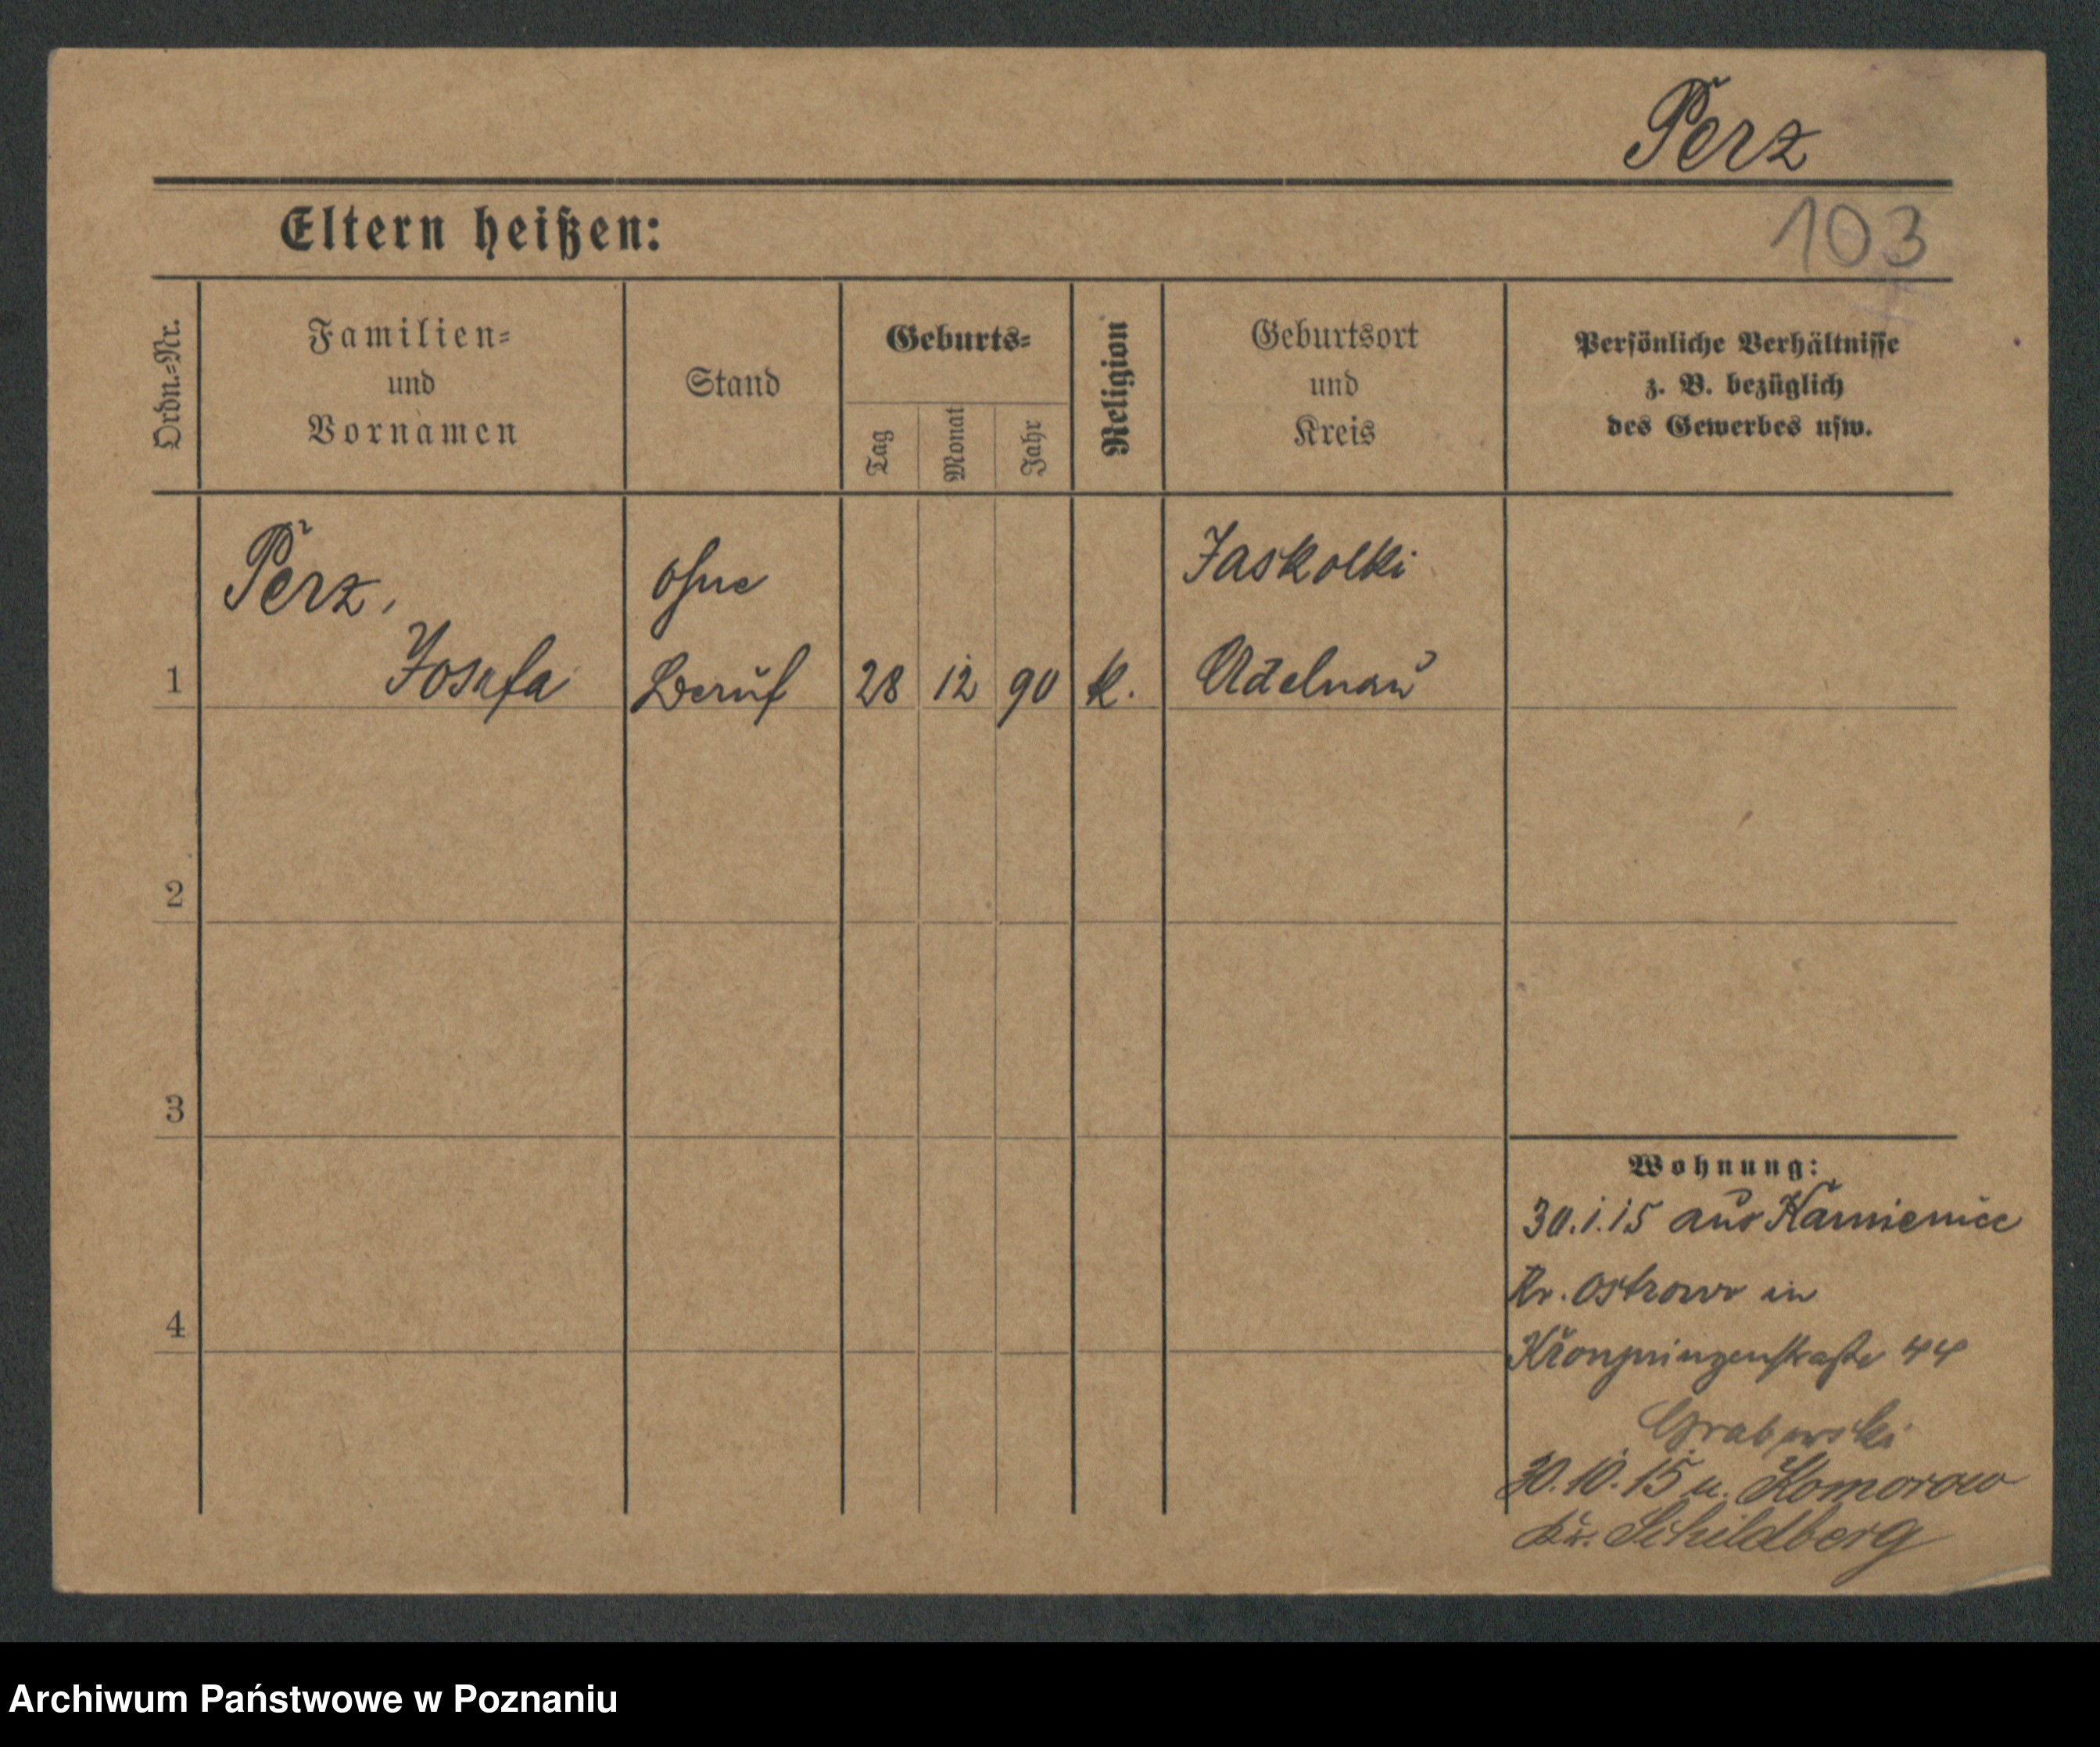 Perz
Eltern heißen:
103
Ordn.-Nr.
Familien-
und
Vornamen
Stand
Geburts-
Tag
Monat
Jahr
Religion
Geburtsort
und
Kreis
Persönliche Verhältnisse
z. B. bezüglich
des Gewerbes usw.
Perz,
Josefa
ohne
Beruf
28
12
90
k.
Jaskolki
Adelnau
1
2
3
4
Wohnung:
30.1.15 aus Kamienice
Kr. Ostrowo in
Kronprinzenstraße 44
Grabowski
30.10.15 n. Komorow
Kr. Schildberg
Archiwum Państwowe w Poznaniu